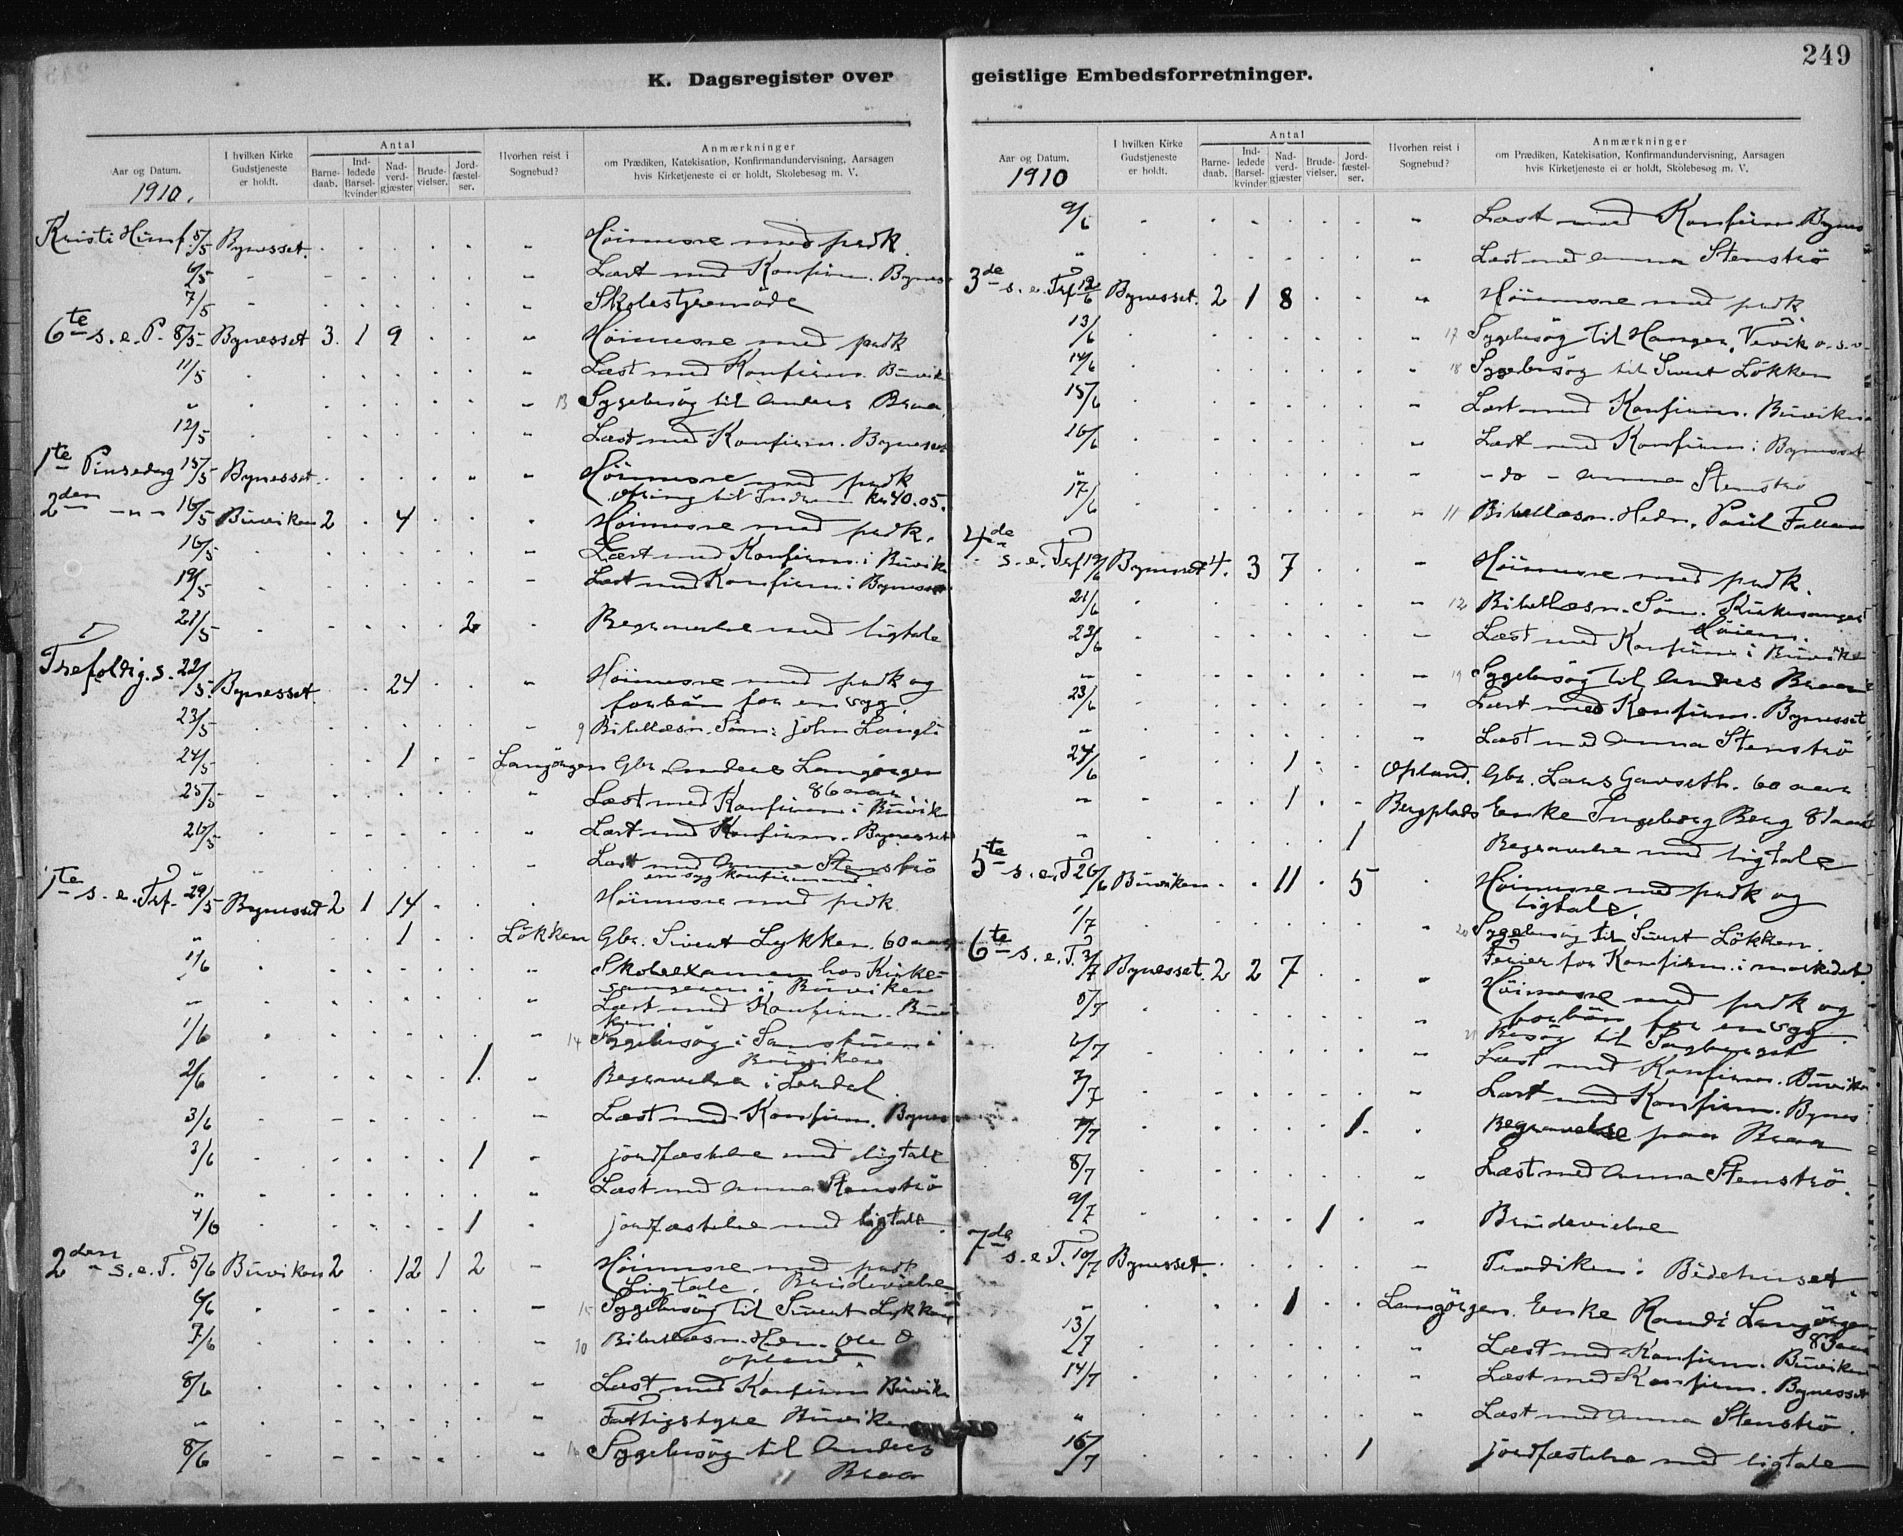 249
K. Dagsregister over geistlige Embedsforretninger.
Aar og Datum. 1910.
I hvilken Kirke Gudstjeneste er holdt.
Antal
Barnedaab.
Indledede Barselkvinder
Nadverdgjæster
Brudevielser.
Jordfæstelser.
Hvorhen reist i Sognebud?
Anmærkninger
om Prædiken, Katekisation, Konfirmandundervisning, Aarsagen
hvis Kirketjeneste ei er holdt, Skolebesøg m. V.
Kristi Himf. 5/5 Bynesset. Høimesse med prdk.
6/5 Læst med Konfirm. Bynes
7/5 Skolestyremøde
6te s. e. P. 8/5 Bynesset 3. 1 9 Høimesse med prdk
11/5 Læst med Konfirm. Buvik
" 13 Sygebesøg til Anders Braa.
12/5 Læst med Konfirm. Bynesset
1te Pinsedag 15/5 Bynesset. Høimesse med prdk
Ofring til Indrem kr 40.05.
2den -"- 16/5 Buviken 2 4 Høimesse med prdk.
16/5 Læst med Konfirm. i Buvik
19/5 Læst med Konfirm. i Bynesset
21/5 2 Begravelse med ligtale
Trefoldig. s. 22/5 Bynesset. 24 Høimesse med prdk og
forbøn for en syg.
23/5 9 Bibellæsn. Søm: John Langli
24/5 1 Langørgen Gbr. Anders Langørgen
86 aar.
25/5 Læst med Konfirm. i Buvik
26/5 Læst med Konfirm. Bynesset
" Læst med Anna Stenstrø
en syg konfirmand
1te s. e. Tref. 29/5 Bynesset 2 1 14 Høimesse med prdk
" 1 Løkken Gbr. Sivert Lykken. 60 aar
1/6 Skoleexamen hos Kirke-
sangeren i Buviken
" Læst med Konfirm. Buvi
ken.
1/6 14 Sygebesøg i
Buviken
2/6 1. Begravelse i
3/6 Læst med Konfirm. Bynes
3/6 1 Jordfæstelse med ligtale
" Læst med Anna Stenstrø
4/6 1 Jordfæstelse med ligtale.
2den s. e. T. 5/6 Buviken 2 12 1 2 Høimesse med prdk
Ligtale. Brudevielse
6/6 15 Sygebesøg til Sivert Lykken
7/6 10 Bibellæsn. Ole O
Opland.
8/6 Læst med Konfirm Buvik
" Fattigstyre Buviken
8/6 16 Sygebesøg til Anders
Braa
Aar og Datum. 1910
I hvilken Kirke Gudstjeneste er holdt.
Antal
Barnedaab.
Indledede Barselkvinder
Nadverdgjæster
Brudevielser.
Jordfæstelser.
Hvorhen reist i Sognebud?
Anmærkninger
om Prædiken, Katekisation, Konfirmandundervisning, Aarsagen
hvis Kirketjeneste ei er holdt, Skolebesøg m. V.
9/6 Læst med Konfirm Bynes
" Læst med Anna Stenstrø
3de s. e. Tref 12/6 Bynesset. 2 1 8 Høimesse med prdk
13/6 17 Sygebesøg til
14/6 18 Sygebesøg til Sivert Løkken
15/6 Læst med Konfirm. Buviken
16/6 Læst med Konfirm. i Bynesset
" - do - Anna Stenstrø
17/6 11 Bibellæsn. Poul
4de s. e. Tref 19/6 Bynesset 4. 3 7 Høimesse med prdk.
21/6 12 Bibellæsn. Søm. Kirkesanger
Høiem.
23/6 Læst med Konfirm i Buviken
" 19 Sygebesøg til Anders Braa
23/6 Læst med Konfirm. Bynesset
" Læst med Anna Stenstrø
24/6 1 Opland. Gbr. Lars Gavseth. 60 aar
" 1 Bergplads Enke Ingeborg Berg 81 aar
" 1 Begravelse med ligtale
5te s. e. T 26/6 Buviken. 11 5 Høimesse med prdk og
ligtale.
1/7 20 Sygebesøg til Sivert Løkken.
Ferier for Konfirm. i
6te s. e. T. 3/7 Bynesset. 2 2 7 Høimesse med prdk og
forbøn for en syg.
5/7 21 Besøg til
6/7 Læst med Konfirm. Buviken
7/7 Læst med Konfirm. Bynes
7/7 1. Begravelse paa Braa
8/7 Læst med Anna Stenstrø.
9/7 1 Brudevielse
7de s. e. T. 10/7 Bynesset. Prædiken: Bedehuset
" 1 Langørgen. Enke Randi Langørgen
83 aar
13/7 Læst med Konfirm. Buviken
14/7 Læst med Konfirm. Bynesset
" Læst med Anna Stenstrø.
16/7 1 Jordfæstelse med ligtale